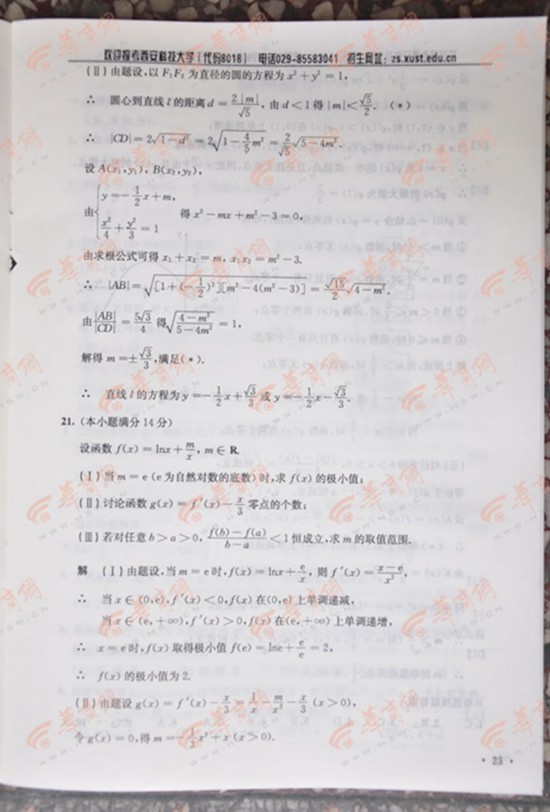 欢迎报考西安科技大学(代码8018) 电话029-85583041 招生网址:zs.xust.edu.cn
(Ⅱ)由题设,以 F₁F₂ 为直径的圆的方程为 x²+y²=1,
∴ 圆心到直线 l 的距离 d=2|m|/√5,由 d<1 得 |m|<√5/2. (*)
∴ |CD|=2√(1-d²)=2√(1-4/5m²)=2/√5√(5-4m²).
设 A(x₁,y₁),B(x₂,y₂),
由{y=-1/2x+m, x²/4+y²/3=1 得 x²-mx+m²-3=0,
由求根公式可得 x₁+x₂=m,x₁x₂=m²-3.
∴ |AB|=√([1+(-1/2)²][m²-4(m²-3)])=√15/2√(4-m²).
由|AB|/|CD|=5√3/4 得√((4-m²)/(5-4m²))=1,
解得 m=±√3/3,满足(*).
∴ 直线 l 的方程为 y=-1/2x+√3/3 或 y=-1/2x-√3/3.
21. (本小题满分 14 分)
设函数 f(x)=lnx+m/x,m∈R.
(Ⅰ)当 m=e(e 为自然对数的底数)时,求 f(x)的极小值;
(Ⅱ)讨论函数 g(x)=f′(x)-x/3 零点的个数;
(Ⅲ)若对任意 b>a>0,(f(b)-f(a))/(b-a)<1 恒成立,求 m 的取值范围.
解 (Ⅰ)由题设,当 m=e 时,f(x)=lnx+e/x,则 f′(x)=(x-e)/x²,
∴ 当 x∈(0,e),f′(x)<0,f(x)在(0,e)上单调递减,
当 x∈(e,+∞),f′(x)>0,f(x)在(e,+∞)上单调递增,
∴ x=e 时,f(x)取得极小值 f(e)=lne+e/e=2,
∴ f(x)的极小值为 2.
(Ⅱ)由题设 g(x)=f′(x)-x/3=1/x-m/x²-x/3(x>0),
令 g(x)=0,得 m=-1/3x³+x(x>0).
· 23 ·
华商网